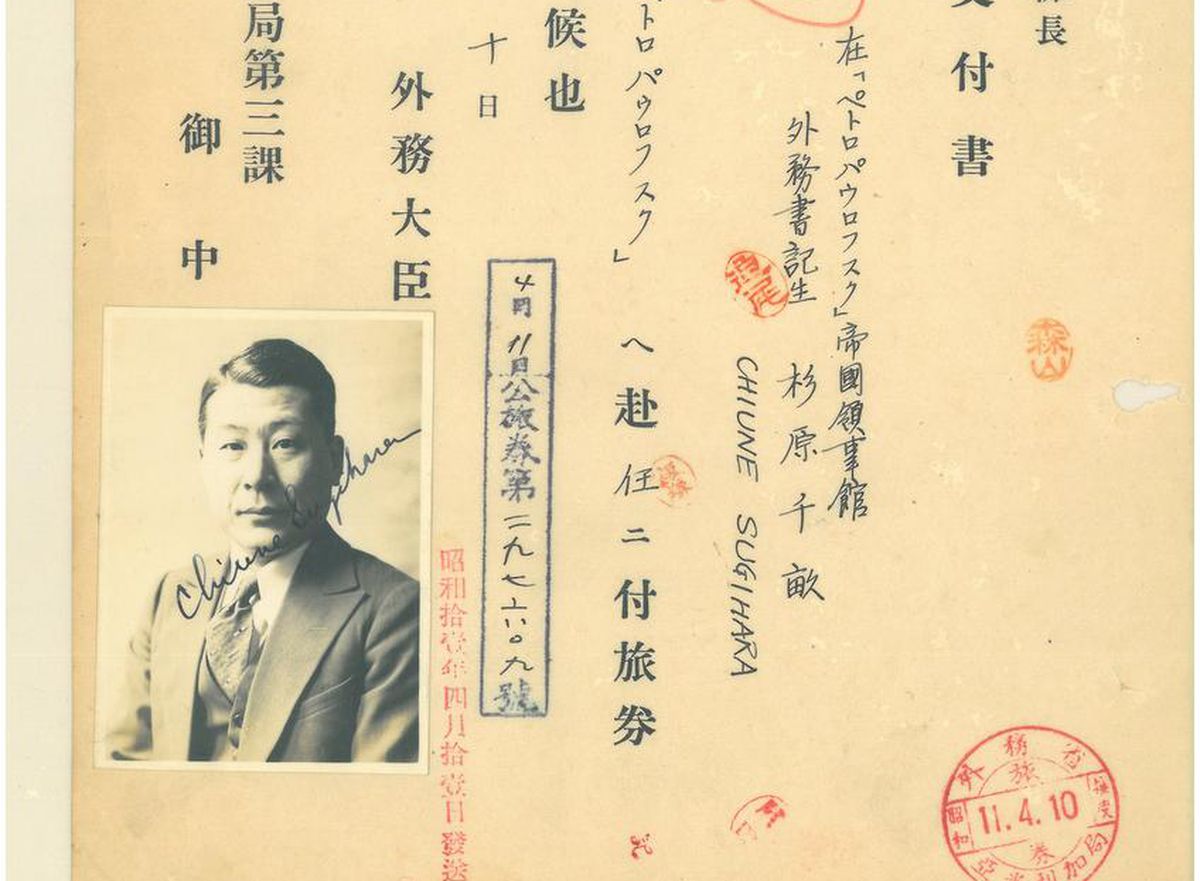 係長
付書
在「ペトロパウロフスク」帝國領事館
外務書記生 杉原千畝
CHIUNE SUGIHARA
トロパウロフスク」へ赴任ニ付旅券
候也
十日
外務大臣
局第三課
御中
4月11日公旅券第二九七六〇九號
昭和拾壹年四月拾壹日發送
Chiune Sugihara
森山
外務省
旅
昭和 11.4.10
券
亞米利加局